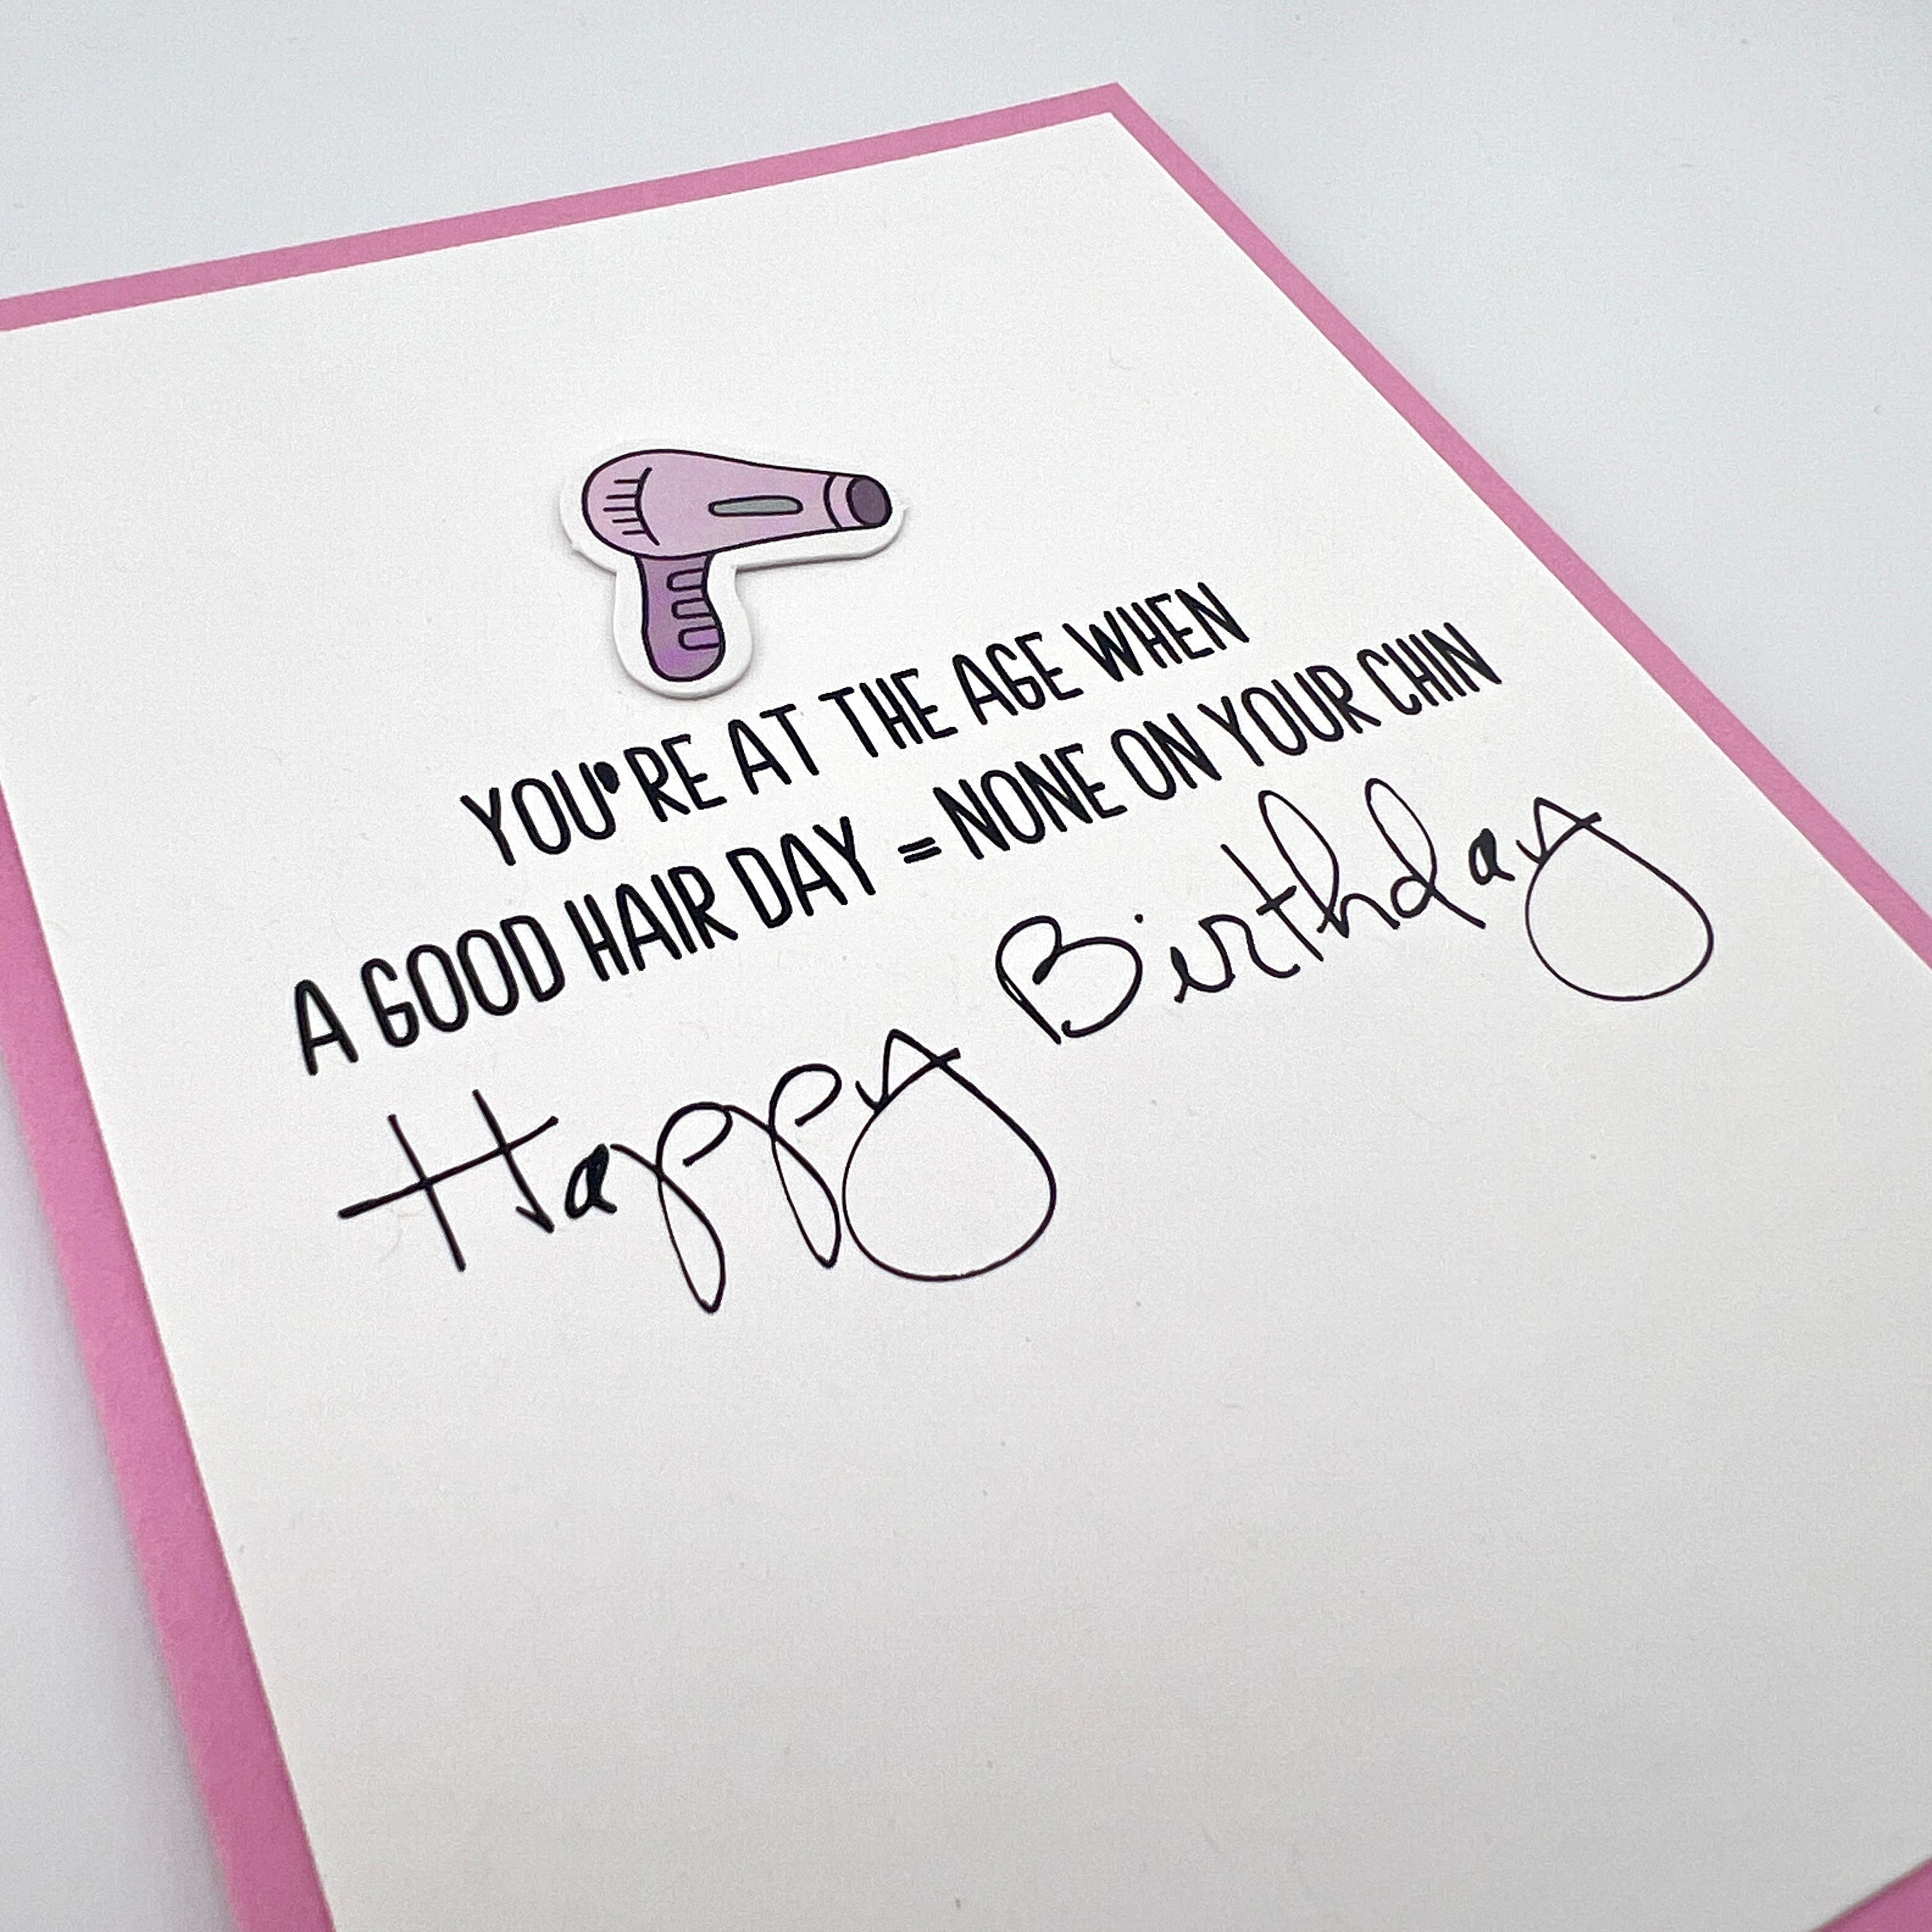 YOU'RE AT THE AGE WHEN
A GOOD HAIR DAY = NONE ON YOUR CHIN
Happy Birthday